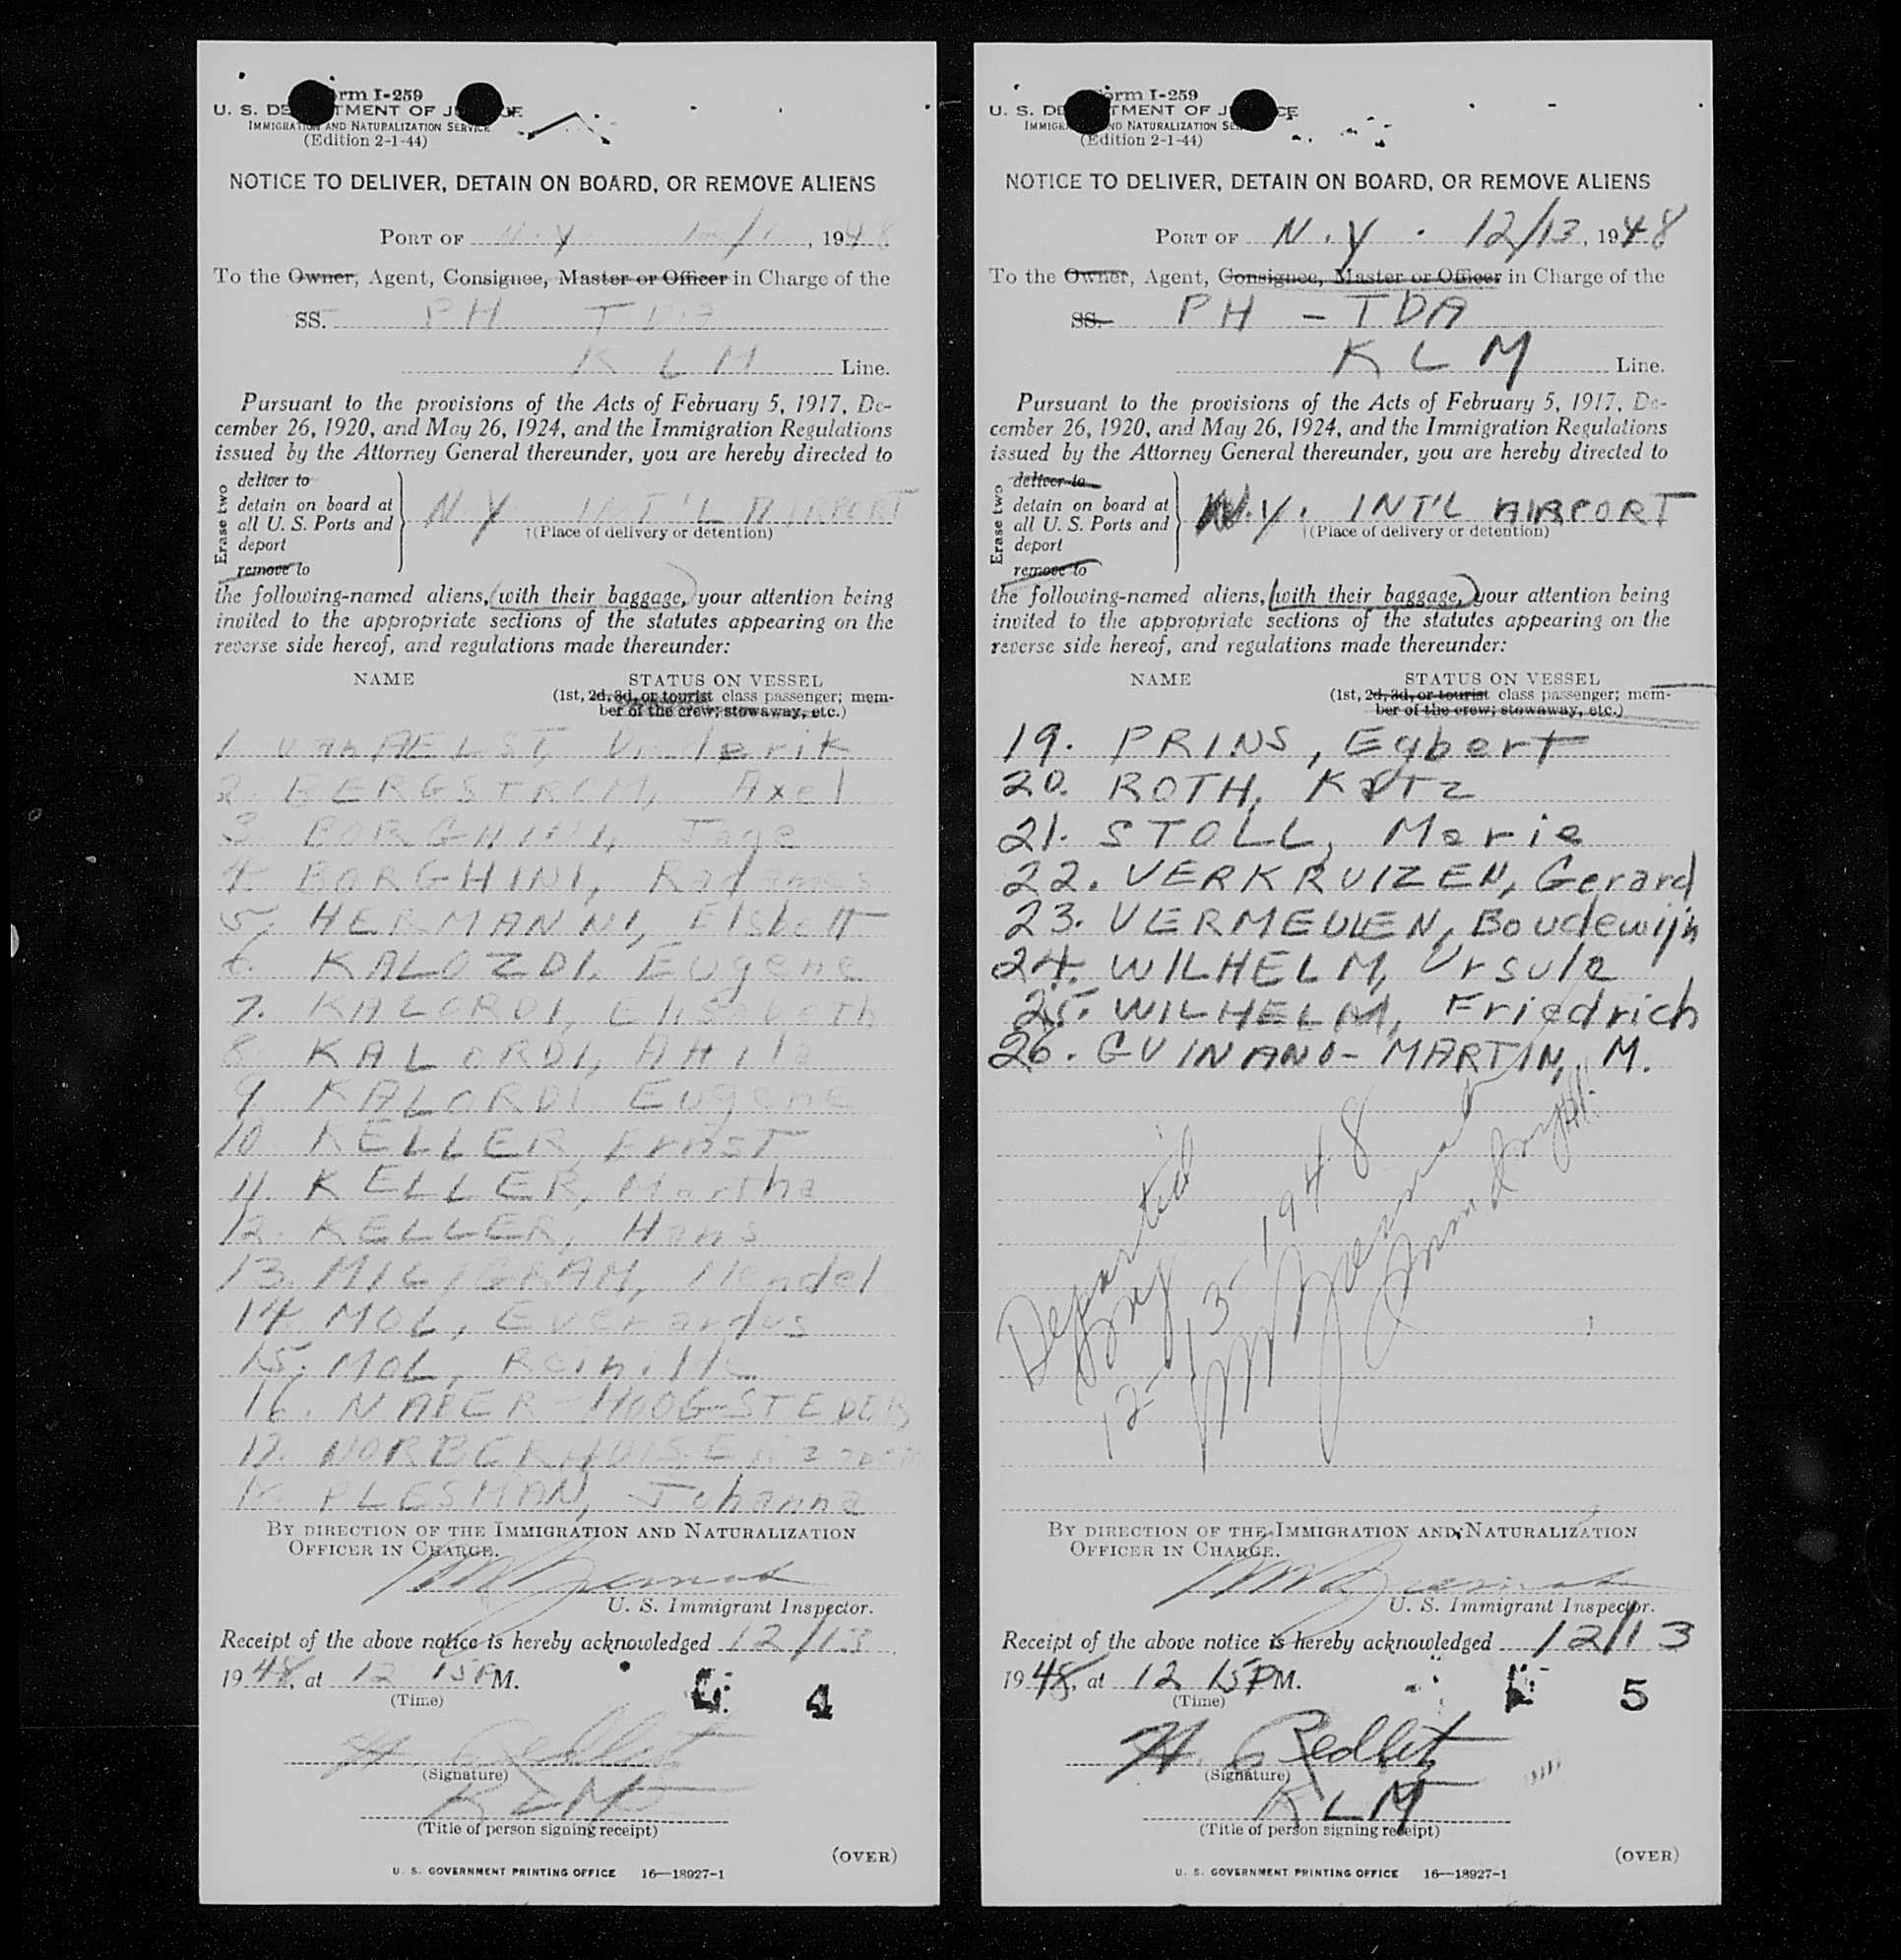 Form I-259
U. S. DEPARTMENT OF JUSTICE
IMMIGRATION AND NATURALIZATION SERVICE
(Edition 2-1-44)
NOTICE TO DELIVER, DETAIN ON BOARD, OR REMOVE ALIENS
PORT OF N.Y. 12/1 , 1948
To the Owner, Agent, Consignee, Master or Officer in Charge of the
SS. PH TDA
KLM Line.
Pursuant to the provisions of the Acts of February 5, 1917, De-
cember 26, 1920, and May 26, 1924, and the Immigration Regulations
issued by the Attorney General thereunder, you are hereby directed to
Erase two
deliver to
detain on board at
all U. S. Ports and
deport
remove to
N.Y. INT'L AIRPORT
(Place of delivery or detention)
the following-named aliens, (with their baggage,) your attention being
invited to the appropriate sections of the statutes appearing on the
reverse side hereof, and regulations made thereunder:
NAME STATUS ON VESSEL
(1st, 2d, 3d, or tourist class passenger; mem-
ber of the crew; stowaway, etc.)
1 van AELST,
2. BERGSTROM, Axel
3. BORGHINI, Tage
4. BORGHINI, Radames
5. HERMANNI, Elsbett
6. KALOZDI, Eugene
7. KALORDI, Elisabeth
8. KALORDI, Attila
9 KALORDI Eugene
10 KELLER, Ernst
11. KELLER, Martha
12. KELLER, Hans
13. MILIGRAM, Mendel
14 MOL, Everardus
15. MOL, Reinilde
16. NABER-HOOGSTEDER
17. NORBERHUISEN
18. PLESMAN, Johanna
BY DIRECTION OF THE IMMIGRATION AND NATURALIZATION
OFFICER IN CHARGE.
U. S. Immigrant Inspector.
Receipt of the above notice is hereby acknowledged 12/13
1948, at 12 15 PM.
(Time)
4
(Signature)
KLM
(Title of person signing receipt)
(OVER)
U. S. GOVERNMENT PRINTING OFFICE 16—18927-1
Form I-259
U. S. DEPARTMENT OF JUSTICE
IMMIGRATION AND NATURALIZATION SERVICE
(Edition 2-1-44)
NOTICE TO DELIVER, DETAIN ON BOARD, OR REMOVE ALIENS
PORT OF N.Y. 12/13, 1948
To the Owner, Agent, Consignee, Master or Officer in Charge of the
SS. PH - TDA
KLM Line.
Pursuant to the provisions of the Acts of February 5, 1917, De-
cember 26, 1920, and May 26, 1924, and the Immigration Regulations
issued by the Attorney General thereunder, you are hereby directed to
Erase two
deliver to
detain on board at
all U. S. Ports and
deport
remove to
N.Y. INT'L AIRPORT
(Place of delivery or detention)
the following-named aliens, (with their baggage,) your attention being
invited to the appropriate sections of the statutes appearing on the
reverse side hereof, and regulations made thereunder:
NAME STATUS ON VESSEL
(1st, 2d, 3d, or tourist class passenger; mem-
ber of the crew; stowaway, etc.)
19. PRINS, Egbert
20. ROTH,
21. STOLL, Marie
22. VERKRUIZEN, Gerard
23. VERMEULEN, Boudewijn
24. WILHELM, Ursula
25. WILHELM, Friedrich
26. GUINAND-MARTIN, M.
Departed
12-13-1948
BY DIRECTION OF THE IMMIGRATION AND NATURALIZATION
OFFICER IN CHARGE.
U. S. Immigrant Inspector.
Receipt of the above notice is hereby acknowledged 12/13
1948, at 12 15 PM.
(Time)
5
(Signature)
KLM
(Title of person signing receipt)
(OVER)
U. S. GOVERNMENT PRINTING OFFICE 16—18927-1